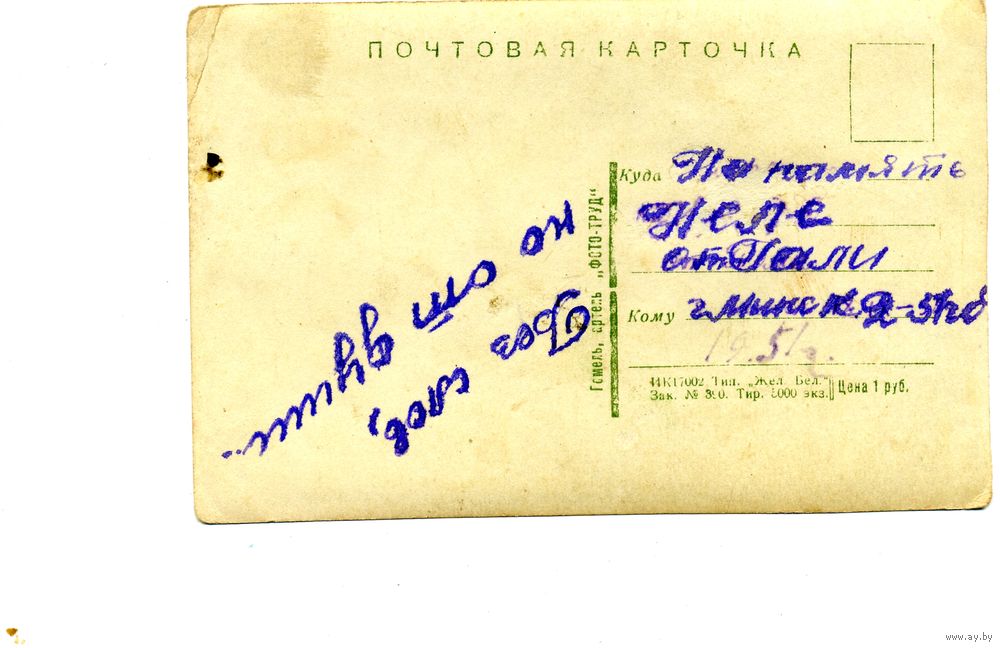 ПОЧТОВАЯ КАРТОЧКА
Без
слов,
но от
души...
Гомель, артель „ФОТО-ТРУД“
Куда На память
Неле
от Гали
Кому г. Минск
1951г.
ИК17002 Тип. „Жел. Бел.“
Зак. № 390. Тир. 5000 экз.
Цена 1 руб.
www.ay.by